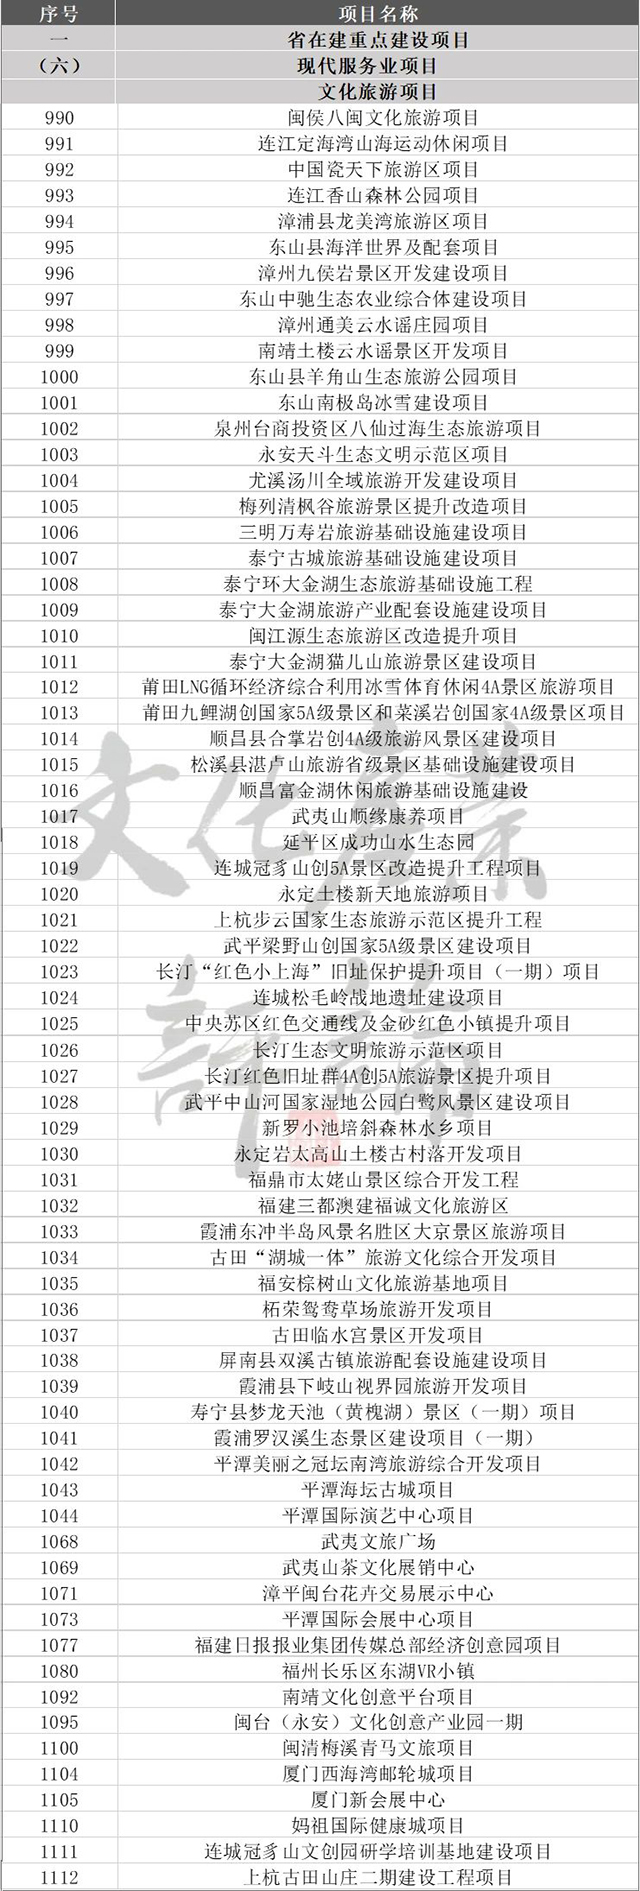 序号 项目名称
一 省在建重点建设项目
（六） 现代服务业项目
文化旅游项目
990 闽侯八闽文化旅游项目
991 连江定海湾山海运动休闲项目
992 中国瓷天下旅游区项目
993 连江香山森林公园项目
994 漳浦县龙美湾旅游区项目
995 东山县海洋世界及配套项目
996 漳州九侯岩景区开发建设项目
997 东山中驰生态农业综合体建设项目
998 漳州通美云水谣庄园项目
999 南靖土楼云水谣景区开发项目
1000 东山县羊角山生态旅游公园项目
1001 东山南极岛冰雪建设项目
1002 泉州台商投资区八仙过海生态旅游项目
1003 永安天斗生态文明示范区项目
1004 尤溪汤川全域旅游开发建设项目
1005 梅列清枫谷旅游景区提升改造项目
1006 三明万寿岩旅游基础设施建设项目
1007 泰宁古城旅游基础设施建设项目
1008 泰宁环大金湖生态旅游基础设施工程
1009 泰宁大金湖旅游产业配套设施建设项目
1010 闽江源生态旅游区改造提升项目
1011 泰宁大金湖猫儿山旅游景区建设项目
1012 莆田LNG循环经济综合利用冰雪体育休闲4A景区旅游项目
1013 莆田九鲤湖创国家5A级景区和菜溪岩创国家4A级景区项目
1014 顺昌县合掌岩创4A级旅游风景区建设项目
1015 松溪县湛卢山旅游省级景区基础设施建设项目
1016 顺昌富金湖休闲旅游基础设施建设
1017 武夷山顺缘康养项目
1018 延平区成功山水生态园
1019 连城冠豸山创5A景区改造提升工程项目
1020 永定土楼新天地旅游项目
1021 上杭步云国家生态旅游示范区提升工程
1022 武平梁野山创国家5A级景区建设项目
1023 长汀“红色小上海”旧址保护提升项目（一期）项目
1024 连城松毛岭战地遗址建设项目
1025 中央苏区红色交通线及金砂红色小镇提升项目
1026 长汀生态文明旅游示范区项目
1027 长汀红色旧址群4A创5A旅游景区提升项目
1028 武平中山河国家湿地公园白鹭风景区建设项目
1029 新罗小池培斜森林水乡项目
1030 永定岩太高山土楼古村落开发项目
1031 福鼎市太姥山景区综合开发工程
1032 福建三都澳建福诚文化旅游区
1033 霞浦东冲半岛风景名胜区大京景区旅游项目
1034 古田“湖城一体”旅游文化综合开发项目
1035 福安棕树山文化旅游基地项目
1036 柘荣鸳鸯草场旅游开发项目
1037 古田临水宫景区开发项目
1038 屏南县双溪古镇旅游配套设施建设项目
1039 霞浦县下岐山视界园旅游开发项目
1040 寿宁县梦龙天池（黄槐湖）景区（一期）项目
1041 霞浦罗汉溪生态景区建设项目（一期）
1042 平潭美丽之冠坛南湾旅游综合开发项目
1043 平潭海坛古城项目
1044 平潭国际演艺中心项目
1068 武夷文旅广场
1069 武夷山茶文化展销中心
1071 漳平闽台花卉交易展示中心
1073 平潭国际会展中心项目
1077 福建日报报业集团传媒总部经济创意园项目
1080 福州长乐区东湖VR小镇
1092 南靖文化创意平台项目
1095 闽台（永安）文化创意产业园一期
1100 闽清梅溪青马文旅项目
1104 厦门西海湾邮轮城项目
1105 厦门新会展中心
1110 妈祖国际健康城项目
1111 连城冠豸山文创园研学培训基地建设项目
1112 上杭古田山庄二期建设工程项目
文化产业
评论